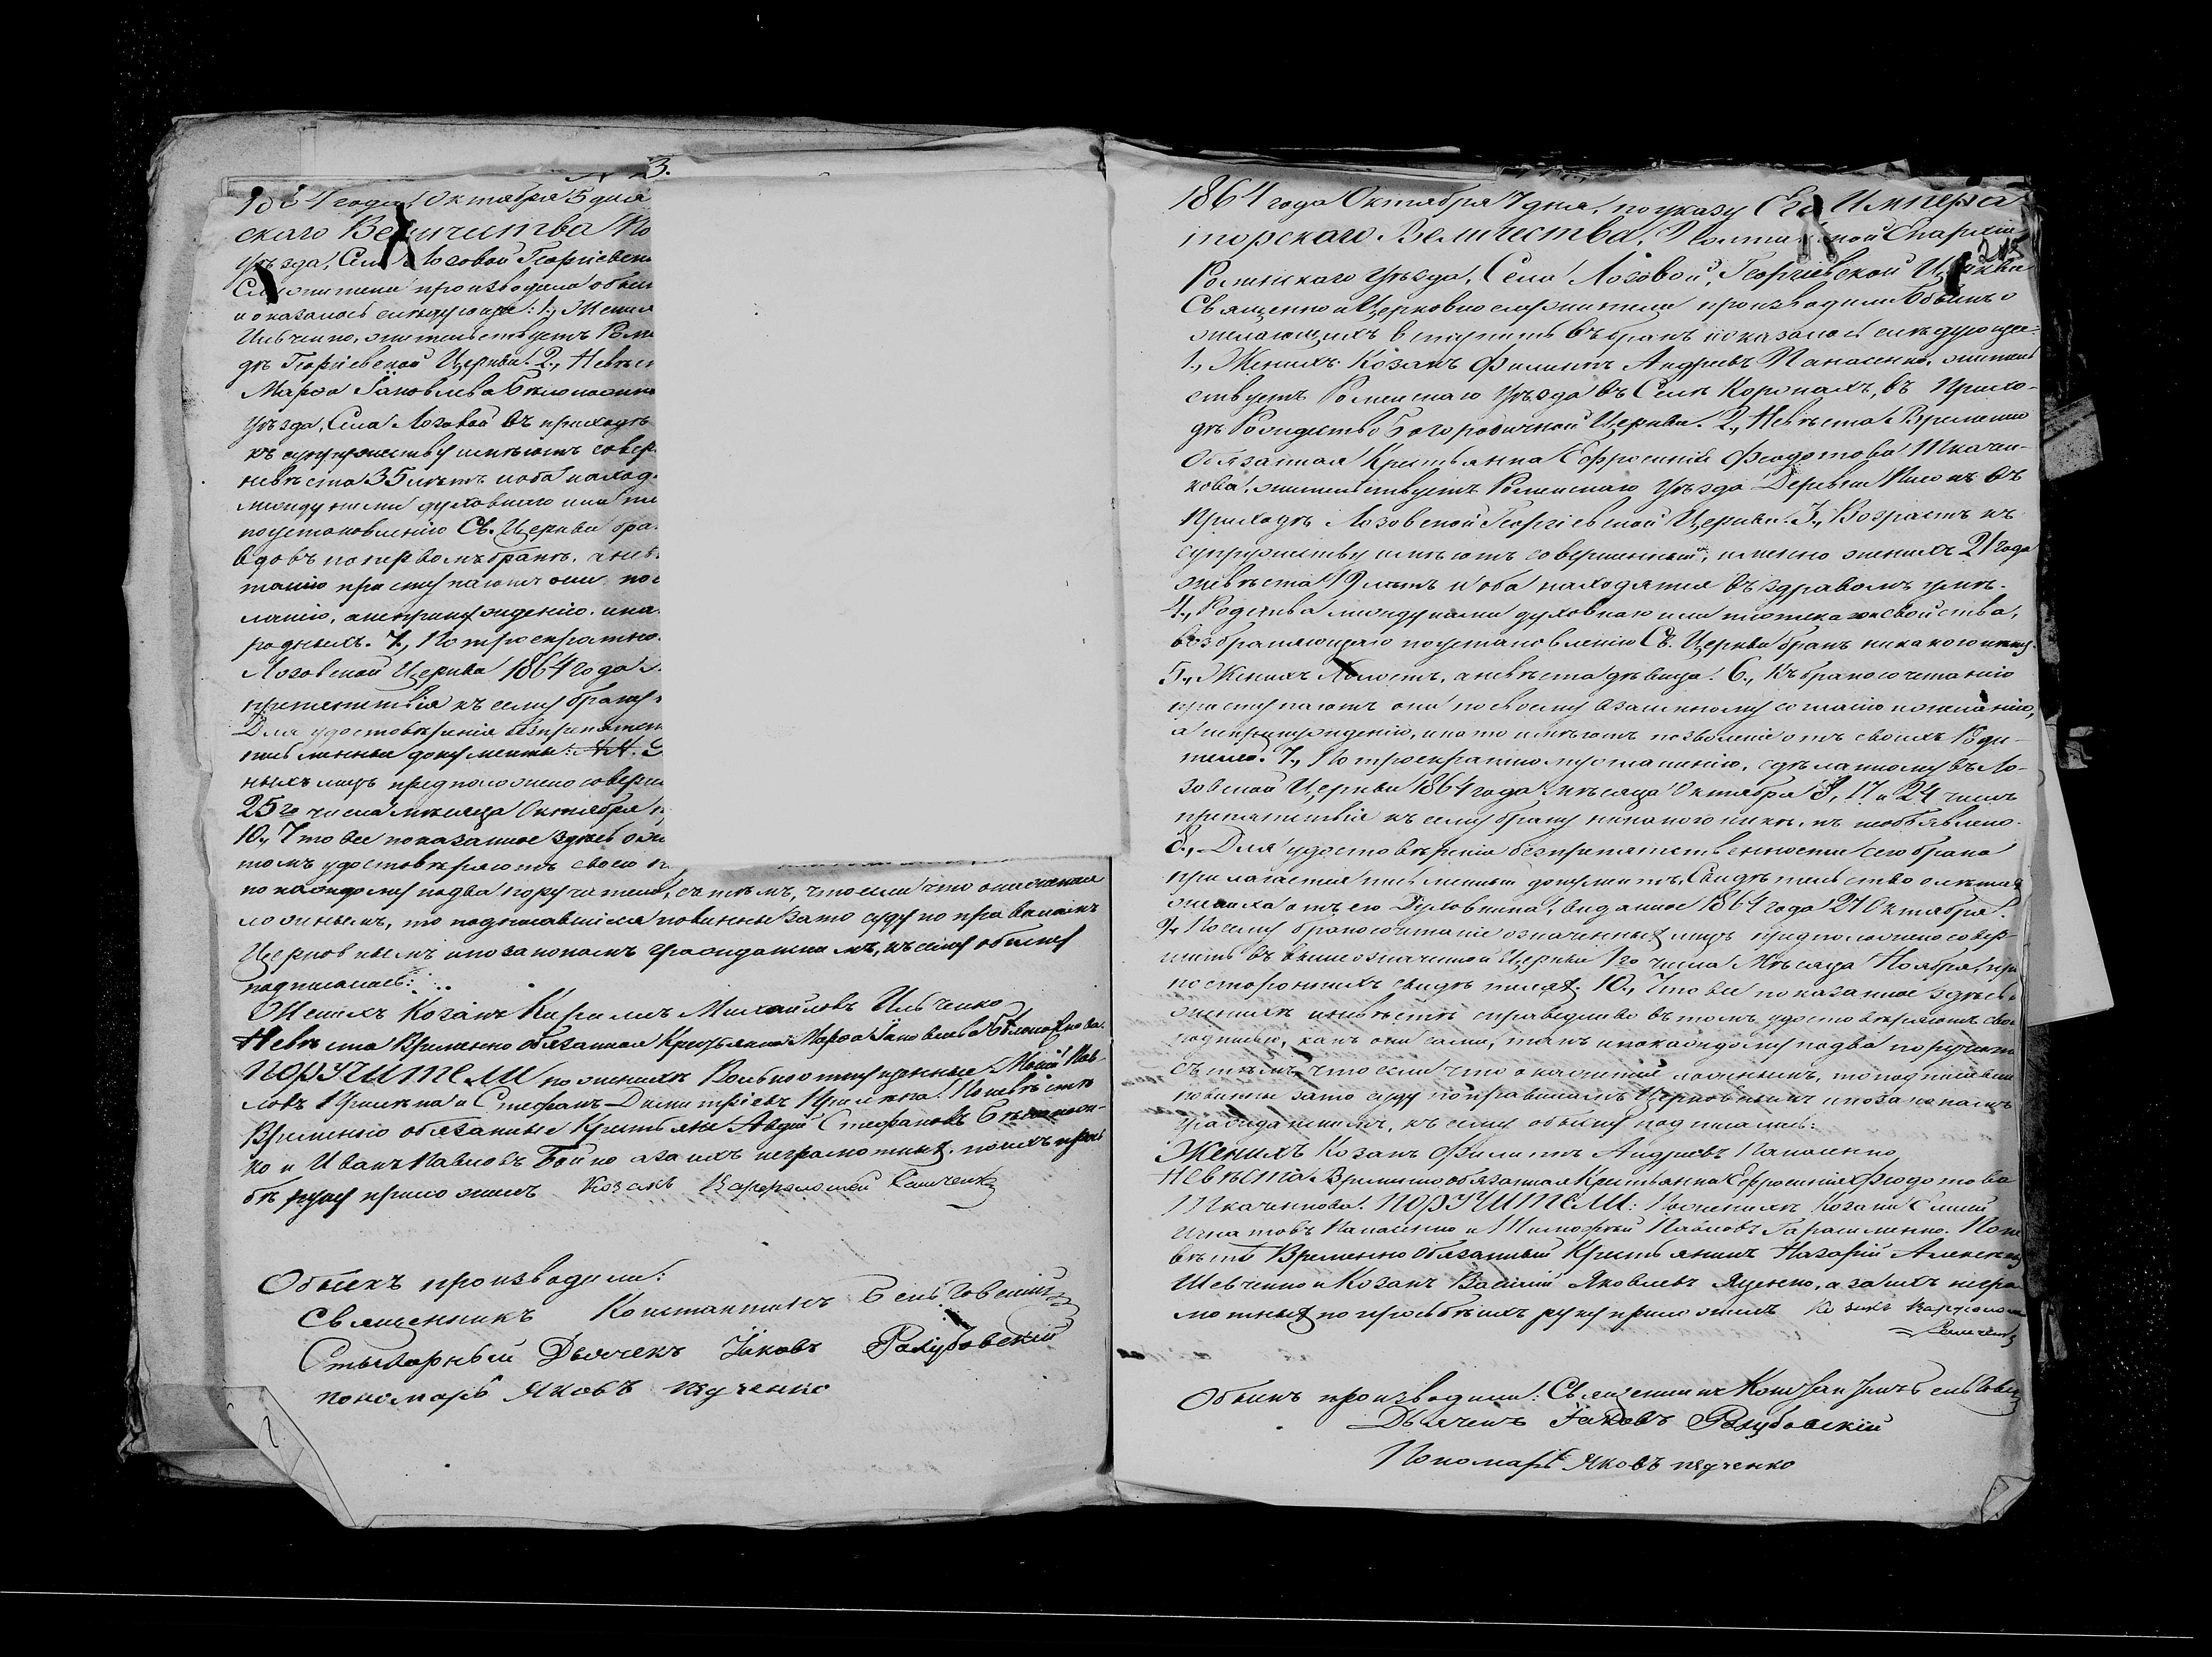 3.
1864 года Октября 5 дня
скаго Величества По
уѣзда, Села Лозовой Георгіевск
Служители производили обыск
и оказалось слѣдующее: 1., Жених
Ильченко, жительствуетъ Роме
дѣ Георгіевской Церкви. 2., Невѣс
Марѳа Іаковлева Бѣлоножко
уѣзда, Села Лозовой въ приходѣ
къ супружеству имѣютъ совер
невѣста 35 лѣтъ и оба наход
между ними духовнаго или пл
по установленію Св. Церкви бра
вдовъ по первомъ бракѣ, а невѣ
танію приступаютъ они по с
ланію, а не принужденію, и на
родныхъ. 7., По троекратно
Лозовской Церкви 1864 года
препятствія къ сему браку
Для удостовѣренія безпрепятст
письменные документы:
ныхъ лицъ предположено соверш
25го числа мѣсяца Октября п
10., Что все показанное здѣсь о же
томъ удостовѣряютъ своею п
по каждому по два поручителя, съ тѣмъ, что если что окажется
ложнымъ, то подписавшіеся повинны за то суду по правиламъ
Церковнымъ и по законамъ гражданскимъ, къ сему обыску
подписались:
Женихъ Козакъ Кирилъ Михайловъ Ильченко
Невѣста Временно обязанная Крестьянка Марѳа Іаковлева Бѣлоножкова.
Поручители по женихѣ Вольноотпущенные: Моисей Пав-
ловъ и Стефанъ Димитріевъ По невѣстѣ
Временно обязанные Крестьяне Авдій Стефановъ Бѣлонож-
ко и Иванъ Павловъ Бойко а за ихъ неграмотныхъ, по ихъ прось
бѣ руку приложилъ Козакъ Варфоломей
Обыскъ производили:
Священникъ Константинъ Бельговскій
Стихарный Дьячекъ Іаковъ Голубовскій
пономарь Яковъ
1864 года Октября 7 дня, по указу Его Импера
торскаго Величества, Полтавской Епархіи
213
Роменскаго уѣзда, Села Лозовой, Георгіевской Церкви
Священно и Церковно служители производили Обыскъ о
желающихъ вступить въ бракъ и оказалось слѣдующее:
1., Женихъ Козакъ Филиппъ Андреевъ Панасенко, житель
ствуетъ Роменскаго уѣзда въ Селѣ Коропахъ, въ прихо-
дѣ Рождество Богородичной Церкви. 2., Невѣста Временно
Обязанная Крестьянка Евфросинія Ѳеодотова Ткачен-
кова, жительствуетъ Роменскаго уѣзда Деревни въ
Приходѣ Лозовской Георгіевской Церкви. 3., Возрастъ къ
супружеству имѣютъ совершенный, именно женихъ 21 года
невѣста 19 лѣтъ и оба находятся въ здравомъ умѣ.
4., Родства между ними духовнаго или плотскаго и свойства,
возбраняющаго по установленію Св. Церкви бракъ никакого нѣтъ.
5., Женихъ Холостъ, а невѣста дѣвица. 6., Къ бракосочетанію
приступаютъ они по своему взаимному согласію и желанію,
а не принужденію, и на то имѣютъ позволеніе отъ своихъ Роди-
телей. 7., По троекратному оглашенію, сдѣланному въ Ло-
зовской Церкви 1864 года мѣсяца Октября 8, 17 и 24 чиселъ
препятствія къ сему браку никакого никѣмъ не объявлено.
8., Для удостовѣренія безпрепятственности сего брака
прилагается письменный документъ, Свидѣтельство о лѣтахъ
жениха отъ его Духовника, выданное 1864 года 21 Октября.
9., Посему бракосочетаніе означенныхъ лицъ предположено совер-
шить въ вышеозначенной Церкви 1го числа Мѣсяца Ноября, при
постороннихъ свидѣтеляхъ. 10., Что все показанное здѣсь о
женихѣ и невѣстѣ справедливо въ томъ удостовѣряютъ свое
подписью, какъ они сами, такъ и по каждому по два поручите
съ тѣмъ, что если что окажется ложнымъ, то подписавш
повинны за то суду по правиламъ Церковнымъ и по законамъ
гражданскимъ, къ сему обыску подписались:
Женихъ Козакъ Филиппъ Андреевъ Панасенко
Невѣста Временно обязанная Крестьянка Евфросинія Ѳеодотова
Ткаченкова. Поручители: По женихѣ Козаки
Игнатовъ Панасенко и Тимофей Павловъ Герасименко. По не
вѣстѣ Временно Обязанный Крестьянинъ Назарій Алексеевъ
Шевченко и Козакъ Василій Яковлевъ Яценко, а за ихъ негра
мотныхъ по просьбѣ ихъ руку приложилъ Козакъ Варфолом
Обыскъ производили: Священникъ Константинъ Бельговск
Дьячекъ Іаковъ Голубовскій
Пономарь Яковъ